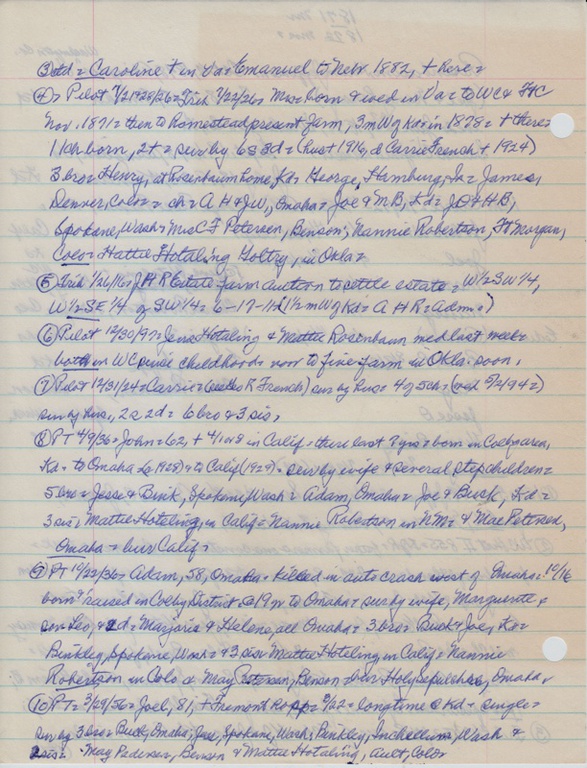 1871 Nov
1872 Mar
③ d = Caroline + in Va = Emanuel to Nebr 1882, + here =
④ = Pilot 1/21 1926/36 = Trib 7/22/26 = Mrs born & wed in Va = to WC &
Nov. 1871 = then to Homestead present farm, 3 m W of Kd = in 1878 = + there =
11 ch born, 2 + = sur by 6 s 3 d = (hus + 1916, d Carrie French + 1924)
3 bro = Henry, at Rosenbaum home, Kd = George, Hamburg, Ia = James,
Denver, Colo = ch = A H & JW, Omaha = Joe & MB, Kd = JO & HB,
Spokane, Wash = Mrs C F Petersen, Benson; Nannie Robertson, Ft Morgan,
Colo = Hattie Hotaling Goltry, in Okla =
⑤ Trib 1/26/16 = J H R Estate farm auction to settle estate = W½ SW¼,
W½ SE¼ of SW¼ = 6-17-11 (1½ m W of Kd = A H R = Adm =)
⑥ Pilot 12/30/97 = Hotaling & Mattie Rosenbaum med last week =
both in WC since childhood = now to fine farm in Okla. soon.
⑦ Pilot 12/31/24 = Carrie (R French) sur by hus & 4 of 5 ch = (wed 5/2/94 =)
sur by hus., 2 s 2 d = 6 bro & 3 sis.
⑧ PT 4/9/36 = John = 62, + 4/1 or 8 in Calif = there last 7 yrs = born in Colby area,
Kd = to Omaha (to 1928) & to Calif (1929) = sur by wife & several step children =
5 bro = Jesse & Bink, Spokane, Wash = Adam, Omaha = Joe & Buck, Kd =
3 sis, Mattie Hotaling, in Calif = Nannie Robertson in NM = & Mae Petersen,
Omaha = bur Calif.
⑨ PT 10/22/36 = Adam, 58, Omaha = killed in auto crash west of Omaha = 10/16
born & raised in Colby District = @ 19 yr to Omaha = sur by wife, Marguerite &
son Leo, & 2 d = Marjorie & Helene, all Omaha = 3 bro = Buck & Joe, Kd =
Binkley, Spokane, Wash = & 3 sis = Mattie Hotaling in Calif = Nannie
Robertson in Colo & May Petersen, Benson = bur Holy Sepulchre, Omaha =
⑩ PT = 3/29/56 = Joel, 81, + Fremont Hosp = 3/22 = longtime @ Kd = single =
sur by 3 bro = Buck, Omaha; Jesse, Spokane, Wash; Binkley, Inchelium, Wash &
2 sis = May Pedersen, Benson & Mattie Hotaling, Ault, Colo